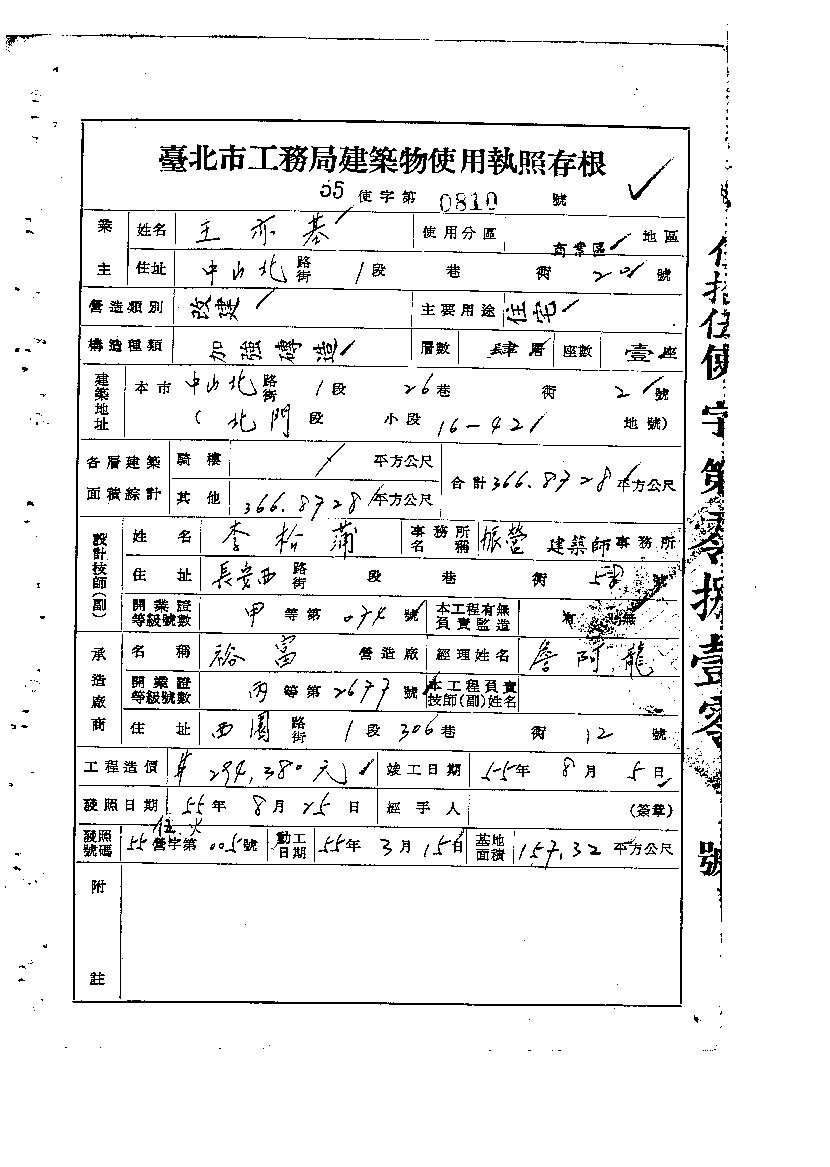 臺北市工務局建築物使用執照存根
55 使字第 0810 號
業主 姓名 王亦基 使用分區 商業區 地區
住址 中山北 路街 1段 巷 衖 號
營造類別 改建 主要用途 住宅
構造種類 加強磚造 層數 肆層 座數 壹座
建築地址 本市 中山北 路街 1段 26巷 衖 號
(北門 段 小段 16-421 地號)
各層建築面積綜計 騎樓 平方公尺 合計 366.8728 平方公尺
其他 366.8728 平方公尺
設計技師(副) 姓名 李松蒲 事務所名稱 振聲 建築師事務所
住址 長安西 路街 段 巷 衖 58 號
開業證等級號數 甲 等第 074 號 本工程有無負責監造 有 無
承造廠商 名稱 裕富 營造廠 經理姓名 詹阿龍
開業證等級號數 丙 等第 2677 號 本工程負責技師(副)姓名
住址 西園 路街 1段 306巷 衖 12 號
工程造價 294,380元 竣工日期 55年 8月 5日
發照日期 55年 8月 25日 經手人 (簽章)
發照號碼 55 營字第 005號 動工日期 55年 3月 15日 基地面積 157.32 平方公尺
附註
伍拾伍使字第零捌壹零號